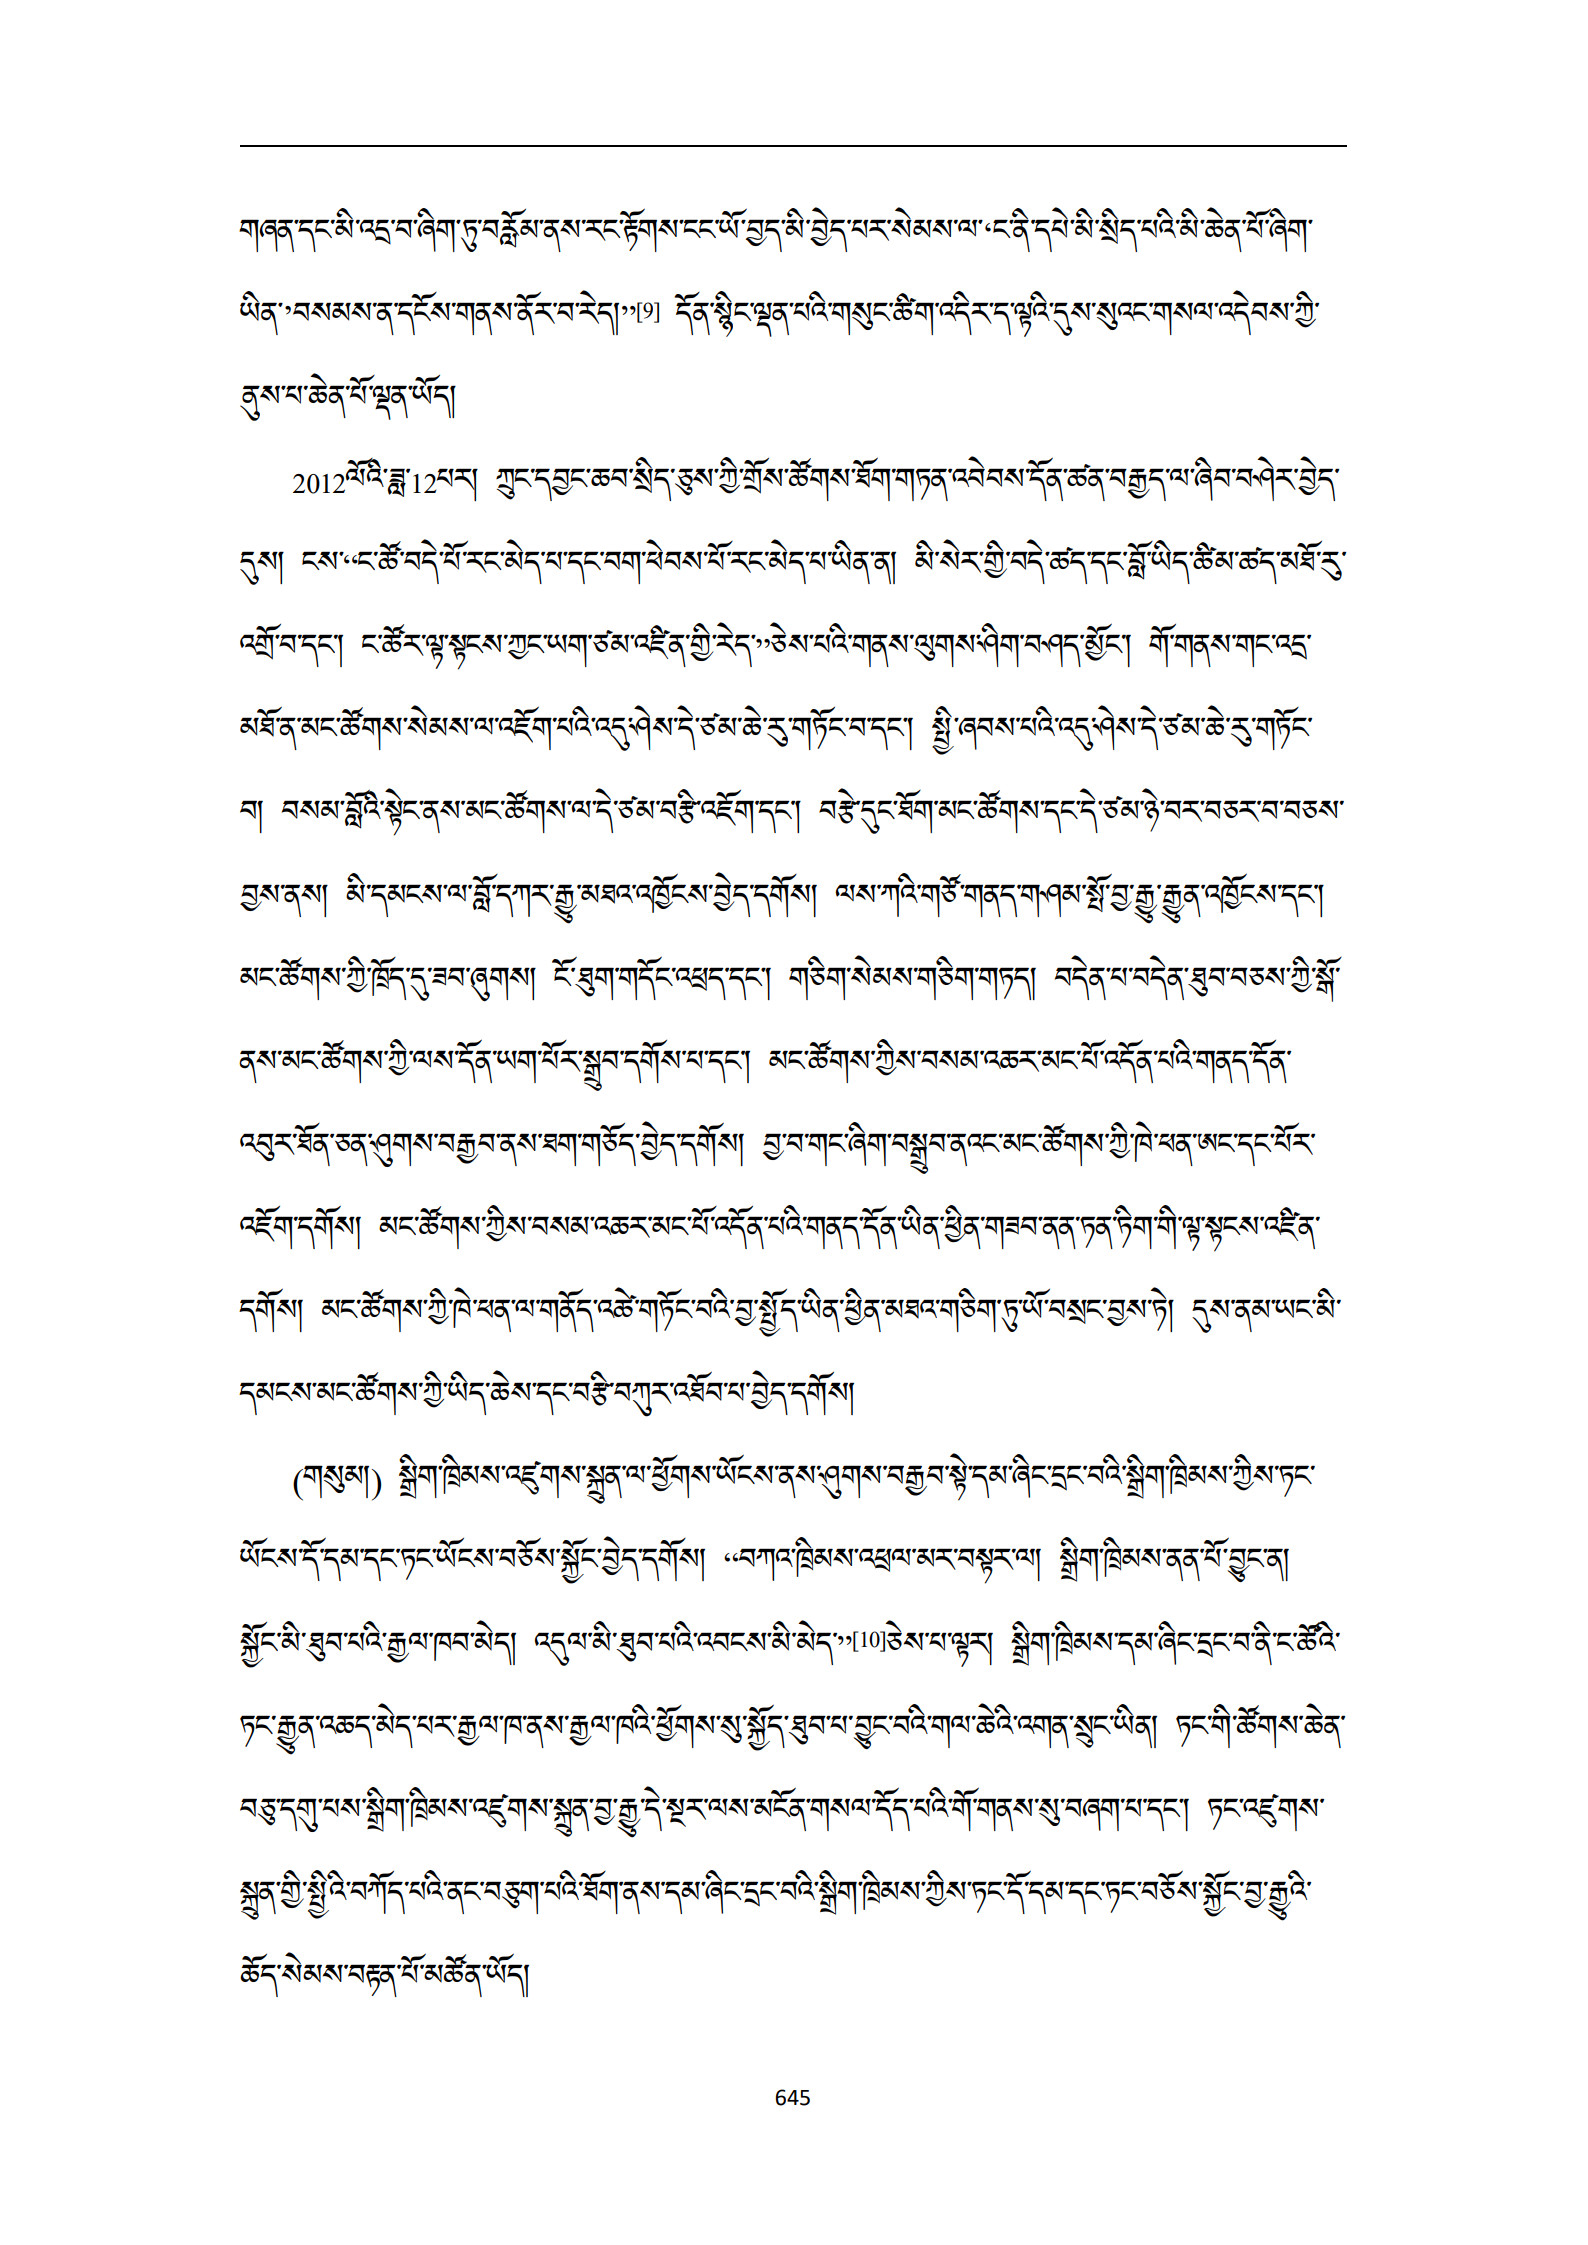 གཞན་དང་མི་འདྲ་བ་ཞིག་ཏུ་བརློམ་ནས་རང་རྟོགས་ངང་ཡོ་བྱད་མི་བྱེད་པར་སེམས་ལ་‘ང་ནི་དཔེ་མི་སྲིད་པའི་མི་ཆེན་པོ་ཞིག་
ཡིན་’བསམས་ན་དངོས་གནས་ནོར་བ་རེད།”[9] དོན་སྙིང་ལྡན་པའི་གསུང་ཚིག་འདིར་ད་ལྟའི་དུས་སུའང་གསལ་འདེབས་ཀྱི་
ནུས་པ་ཆེན་པོ་ལྡན་ཡོད།
2012ལོའི་ཟླ་12པར། ཀྲུང་དབྱང་ཆབ་སྲིད་ཅུས་ཀྱི་གྲོས་ཚོགས་ཐོག་གཏན་འབེབས་དོན་ཚན་བརྒྱད་ལ་ཞིབ་བཤེར་བྱེད་
དུས། ངས་“ང་ཚོ་བདེ་པོ་རང་མེད་པ་དང་བག་ཕེབས་པོ་རང་མེད་པ་ཡིན་ན། མི་སེར་གྱི་བདེ་ཚད་དང་བློ་ཡིད་ཚིམ་ཚད་མཐོ་རུ་
འགྲོ་བ་དང་། ང་ཚོར་ལྟ་སྟངས་ཀྱང་ཡག་ཙམ་འཛིན་གྱི་རེད་”ཅེས་པའི་གནས་ལུགས་ཤིག་བཤད་མྱོང་། གོ་གནས་གང་འདྲ་
མཐོ་ན་མང་ཚོགས་སེམས་ལ་འཇོག་པའི་འདུ་ཤེས་དེ་ཙམ་ཆེ་རུ་གཏོང་བ་དང་། སྤྱི་ཞབས་པའི་འདུ་ཤེས་དེ་ཙམ་ཆེ་རུ་གཏོང་
བ། བསམ་བློའི་སྟེང་ནས་མང་ཚོགས་ལ་དེ་ཙམ་བརྩི་འཇོག་དང་། བརྩེ་དུང་ཐོག་མང་ཚོགས་དང་དེ་ཙམ་ཉེ་བར་བཅར་བ་བཅས་
བྱས་ནས། མི་དམངས་ལ་བློ་དཀར་རྒྱུ་མཐའ་འཁྱོངས་བྱེད་དགོས། ལས་ཀའི་གཙོ་གནད་གཤམ་སྤོ་བྱ་རྒྱུ་རྒྱུན་འཁྱོངས་དང་།
མང་ཚོགས་ཀྱི་ཁྲོད་དུ་ཟབ་ཞུགས། ངོ་ཐུག་གདོང་འཕྲད་དང་། གཅིག་སེམས་གཅིག་གཏད། བདེན་པ་བདེན་ཐུབ་བཅས་ཀྱི་སྒོ་
ནས་མང་ཚོགས་ཀྱི་ལས་དོན་ཡག་པོར་སྒྲུབ་དགོས་པ་དང་། མང་ཚོགས་ཀྱིས་བསམ་འཆར་མང་པོ་འདོན་པའི་གནད་དོན་
འབུར་ཐོན་ཅན་ཤུགས་བརྒྱབ་ནས་ཐག་གཅོད་བྱེད་དགོས། བྱ་བ་གང་ཞིག་བསྒྲུབ་ནའང་མང་ཚོགས་ཀྱི་ཁེ་ཕན་ཨང་དང་པོར་
འཇོག་དགོས། མང་ཚོགས་ཀྱིས་བསམ་འཆར་མང་པོ་འདོན་པའི་གནད་དོན་ཡིན་ཕྱིན་གཟབ་ནན་ཏན་ཏིག་གི་ལྟ་སྟངས་འཛིན་
དགོས། མང་ཚོགས་ཀྱི་ཁེ་ཕན་ལ་གནོད་འཚེ་གཏོང་བའི་བྱ་སྤྱོད་ཡིན་ཕྱིན་མཐའ་གཅིག་ཏུ་ཡོ་བསྲང་བྱས་ཏེ། དུས་ནམ་ཡང་མི་
དམངས་མང་ཚོགས་ཀྱི་ཡིད་ཆེས་དང་བརྩི་བཀུར་འཐོབ་པ་བྱེད་དགོས།
(གསུམ།) སྒྲིག་ཁྲིམས་འཛུགས་སྐྲུན་ལ་ཕྱོགས་ཡོངས་ནས་ཤུགས་བརྒྱབ་སྟེ་དམ་ཞིང་དྲང་བའི་སྒྲིག་ཁྲིམས་ཀྱིས་ཏང་
ཡོངས་དོ་དམ་དང་ཏང་ཡོངས་བཅོས་སྐྱོང་བྱེད་དགོས། “བཀའ་ཁྲིམས་འཕྲལ་མར་བསྟར་ལ། སྒྲིག་ཁྲིམས་ནན་པོ་བྱུང་ན།
སྐྱོང་མི་ཐུབ་པའི་རྒྱལ་ཁབ་མེད། འདུལ་མི་ཐུབ་པའི་འབངས་མི་མེད་”[10]ཅེས་པ་ལྟར། སྒྲིག་ཁྲིམས་དམ་ཞིང་དྲང་བ་ནི་ང་ཚོའི་
ཏང་རྒྱུན་འཆད་མེད་པར་རྒྱལ་ཁ་ནས་རྒྱལ་ཁའི་ཕྱོགས་སུ་སྐྱོད་ཐུབ་པ་བྱུང་བའི་གལ་ཆེའི་འགན་སྲུང་ཡིན། ཏང་གི་ཚོགས་ཆེན་
བཅུ་དགུ་པས་སྒྲིག་ཁྲིམས་འཛུགས་སྐྲུན་བྱ་རྒྱུ་དེ་སྔར་ལས་མངོན་གསལ་དོད་པའི་གོ་གནས་སུ་བཞག་པ་དང་། ཏང་འཛུགས་
སྐྲུན་གྱི་སྤྱིའི་བཀོད་པའི་ནང་བཅུག་པའི་ཐོག་ནས་དམ་ཞིང་དྲང་བའི་སྒྲིག་ཁྲིམས་ཀྱིས་ཏང་དོ་དམ་དང་ཏང་བཅོས་སྐྱོང་བྱ་རྒྱུའི་
ཆོད་སེམས་བརྟན་པོ་མཚོན་ཡོད།
645